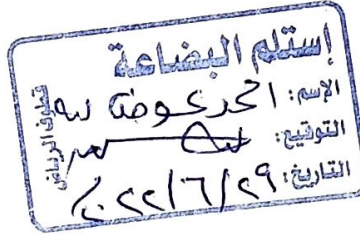 إستلم البضاعة
الإسم: احمد عوض
التوقيع:
التاريخ: ٢٠٢٢/٦/٢٩
قطوف الرياض